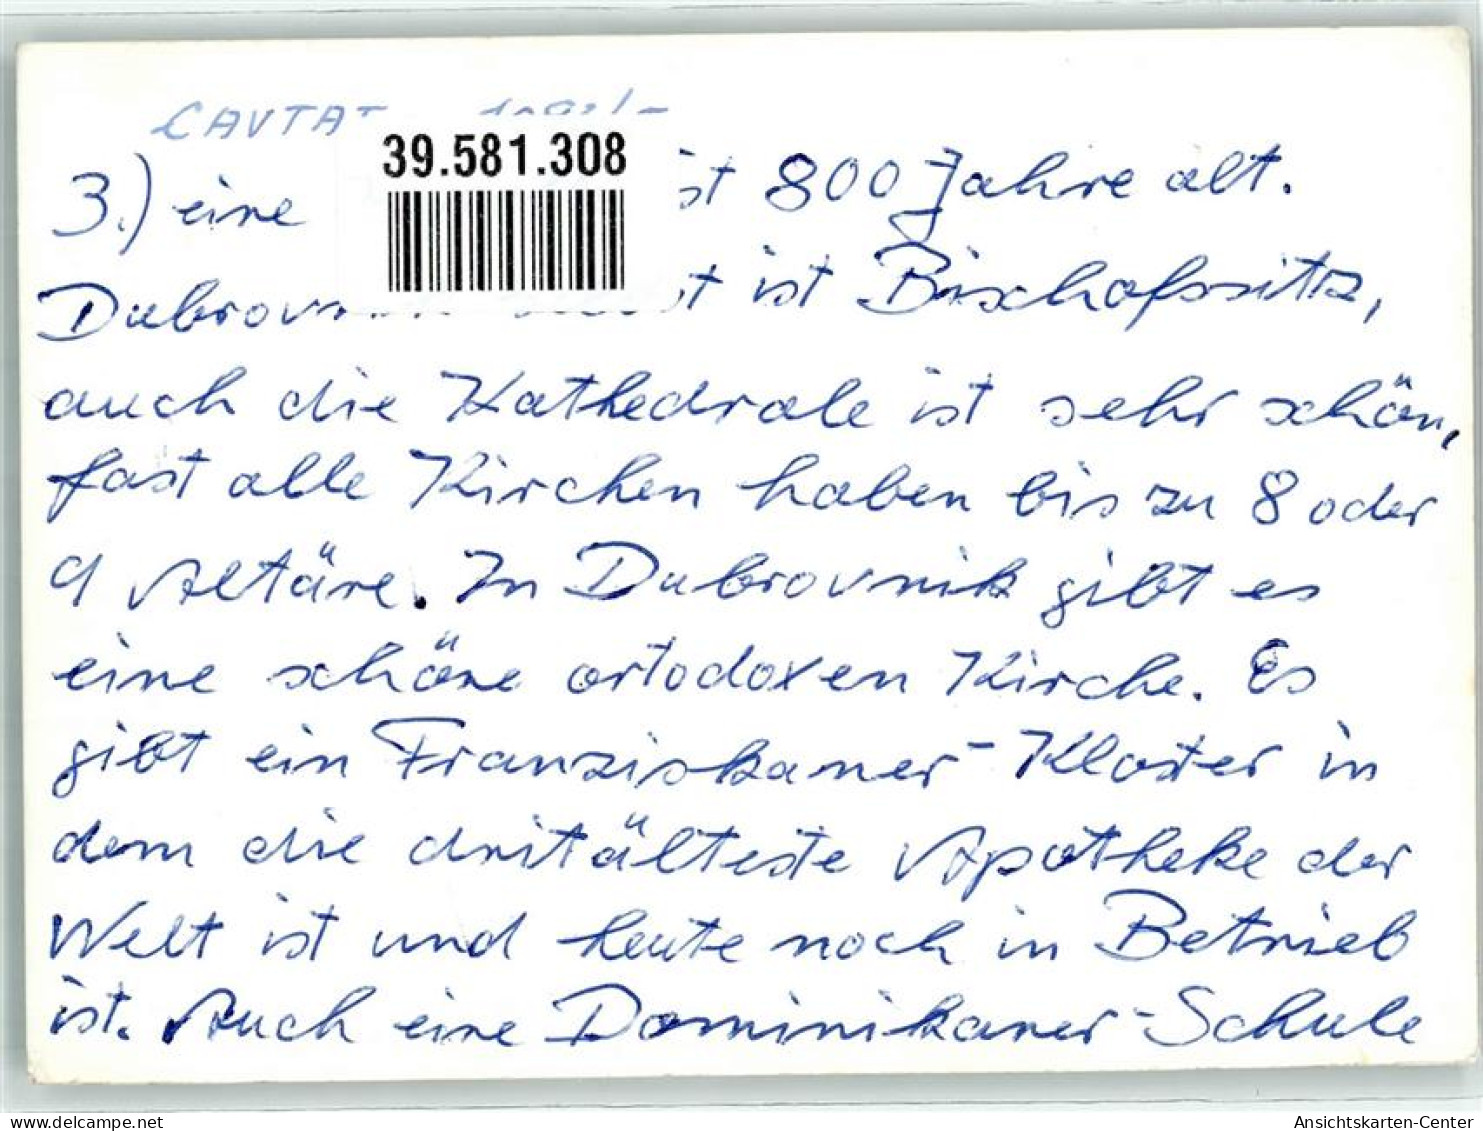 CAVTAT
39.581.308
3.) eine ist 800 Jahre alt.
Dubrovnik ist Bischofssitz,
auch die Kathedrale ist sehr schön,
fast alle Kirchen haben bis zu 8 oder
9 Altäre. In Dubrovnik gibt es
eine schöne ortodoxen Kirche. Es
gibt ein Franziskaner-Kloster in
dem die dritälteste Apotheke der
Welt ist und heute noch in Betrieb
ist. Auch eine Dominikaner-Schule
oldthing.com
Ansichtskarten-Center